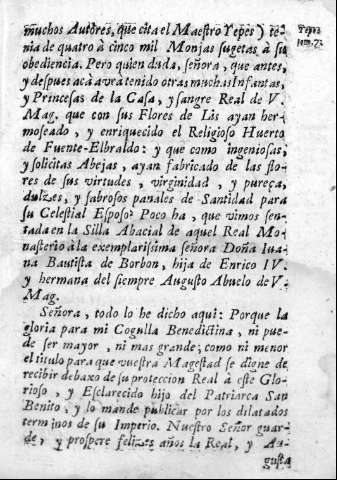 muchos Autores, que cita el Maestro Yepes) te-
nia de quatro à cinco mil Monjas sugetas à su
obediencia. Pero quien duda, señora, que antes,
y despues acà avrà tenido otras muchas Infantas,
y Princesas de la Casa, y sangre Real de V.
Mag. que con sus Flores de Lis ayan her-
moseado, y enriquecido el Religioso Huerto
de Fuente-Elbraldo: y que como ingeniosas,
y solicitas Abejas, ayan fabricado de las flo-
res de sus virtudes, virginidad, y pureça,
dulzes, y sabrosos panales de Santidad para
su Celestial Esposo? Poco ha, que vimos sen-
tada en la Silla Abacial de aquel Real Mo-
nasterio à la exemplarissima señora Doña Iua-
na Bautista de Borbon, hija de Enrico IV.
y hermana del siempre Augusto Abuelo de V.
Mag.
Señora, todo lo he dicho aqui: Porque la
gloria para mi Cogulla Benedictina, ni pue-
de ser mayor, ni mas grande; como ni menor
el titulo para que vuestra Magestad se digne de
recibir debaxo de su proteccion Real à este Glo-
rioso, y Esclarecido hijo del Patriarca San
Benito, y lo mande publicar por los dilatados
terminos de su Imperio. Nuestro Señor guar-
de, y prospere felizes años la Real, y Au-
gusta
Yepes
tom. 7.